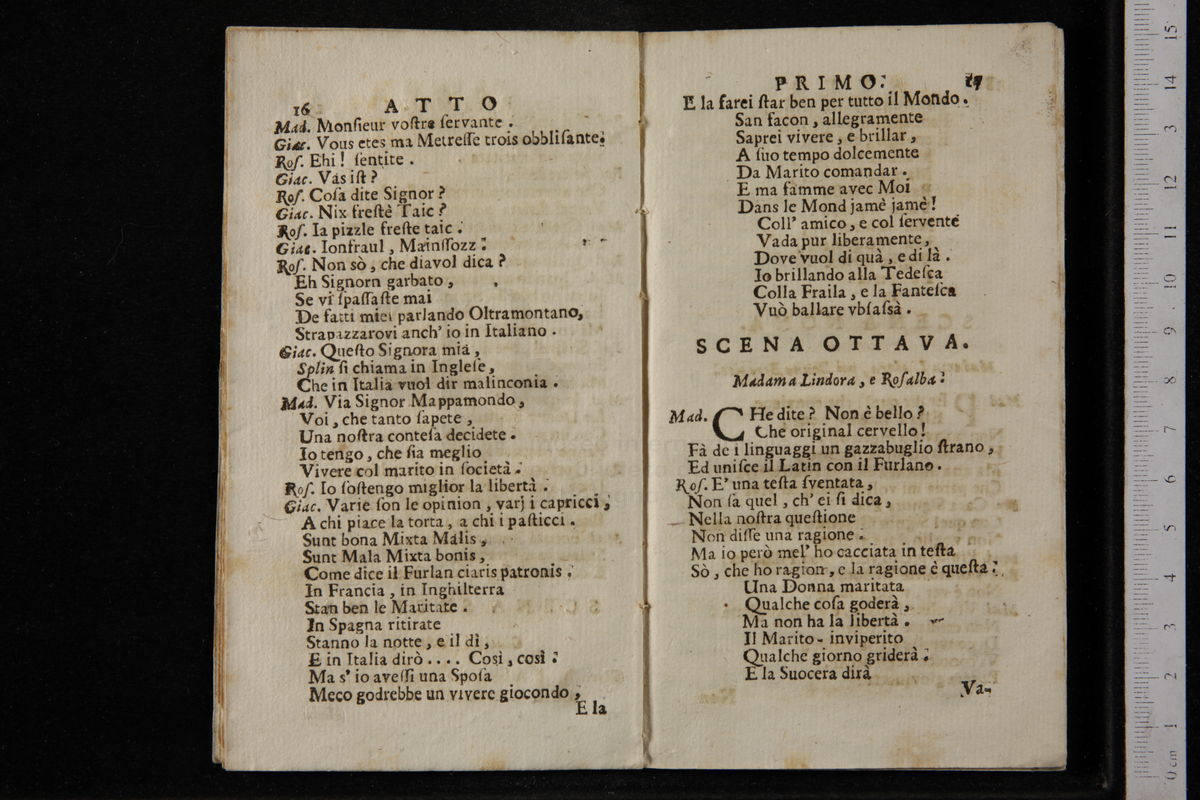 16 ATTO
Mad. Monſieur voſtre ſervante.
Giac. Vous etes ma Metreſſe trois obbliſante.
Roſ. Ehi! ſentite.
Giac. Vas iſt?
Roſ. Coſa dite Signor?
Giac. Nix freſtè Taic?
Roſ. Ia pizzle freſte taic.
Giac. Ionfraul, Mainſſozz.
Roſ. Non sò, che diavol dica?
Eh Signorn garbato,
Se vi ſpaſſaſte mai
De fatti miei parlando Oltramontano,
Strapazzarovi anch' io in Italiano.
Giac. Queſto Signora mia,
Splin ſi chiama in Ingleſe,
Che in Italia vuol dir malinconia.
Mad. Via Signor Mappamondo,
Voi, che tanto ſapete,
Una noſtra conteſa decidete.
Io tengo, che ſia meglio
Vivere col marito in ſocietà.
Roſ. Io ſoſtengo miglior la libertà.
Giac. Varie ſon le opinion, varj i capricci,
A chi piace la torta, a chi i paſticci.
Sunt bona Mixta Malis,
Sunt Mala Mixta bonis,
Come dice il Furlan ciaris patronis.
In Francia, in Inghilterra
Stan ben le Maritate.
In Spagna ritirate
Stanno la notte, e il dì,
E in Italia dirò.... Così, così.
Ma s' io aveſſi una Spoſa
Meco godrebbe un vivere giocondo,
E la
PRIMO. 17
E la farei ſtar ben per tutto il Mondo.
San facon, allegramente
Saprei vivere, e brillar,
A ſuo tempo dolcemente
Da Marito comandar.
E ma famme avec Moi
Dans le Mond jamè jamè!
Coll' amico, e col ſervente
Vada pur liberamente,
Dove vuol di quà, e di là.
Io brillando alla Tedeſca
Colla Fraila, e la Fanteſca
Vuò ballare vbſaſsà.
SCENA OTTAVA.
Madama Lindora, e Roſalba.
Mad. CHe dite? Non è bello?
Che original cervello!
Fà de i linguaggi un gazzabuglio ſtrano,
Ed uniſce il Latin con il Furlano.
Roſ. E' una teſta ſventata,
Non ſa quel, ch' ei ſi dica,
Nella noſtra queſtione
Non diſſe una ragione.
Ma io però mel' ho cacciata in teſta
Sò, che ho ragion, e la ragione è queſta.
Una Donna maritata
Qualche coſa goderà,
Ma non ha la libertà.
Il Marito - inviperito
Qualche giorno griderà.
E la Suocera dirà
Va-